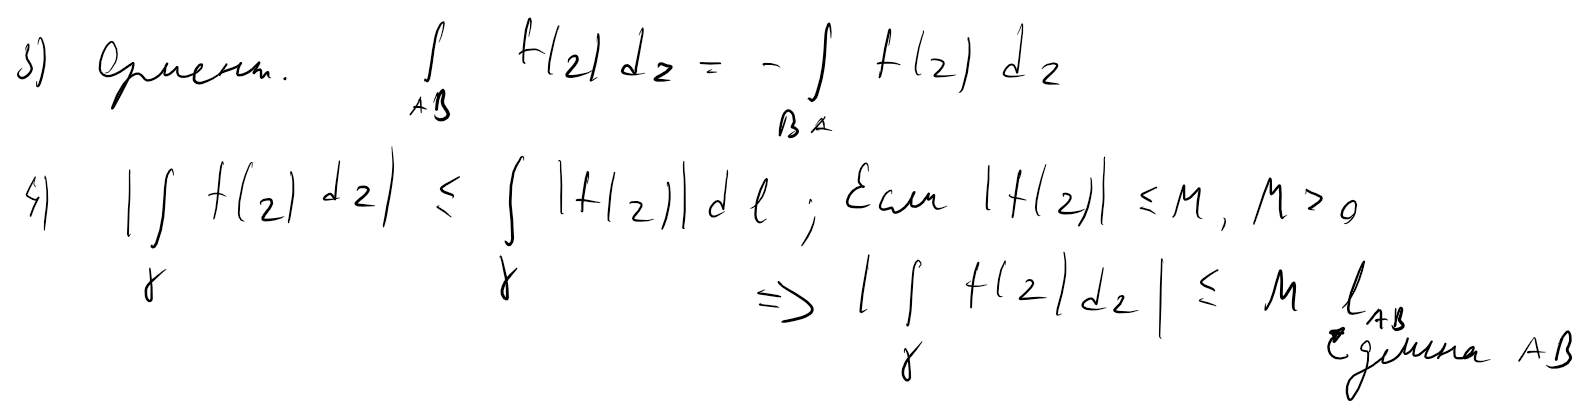 3) Ориент. ∫_{AB} f(z) dz = - ∫_{BA} f(z) dz
4) |∫_γ f(z) dz| ≤ ∫_γ |f(z)| dl ; Если |f(z)| ≤ M, M > 0
⇒ |∫_γ f(z) dz| ≤ M l_{AB}
длина AB